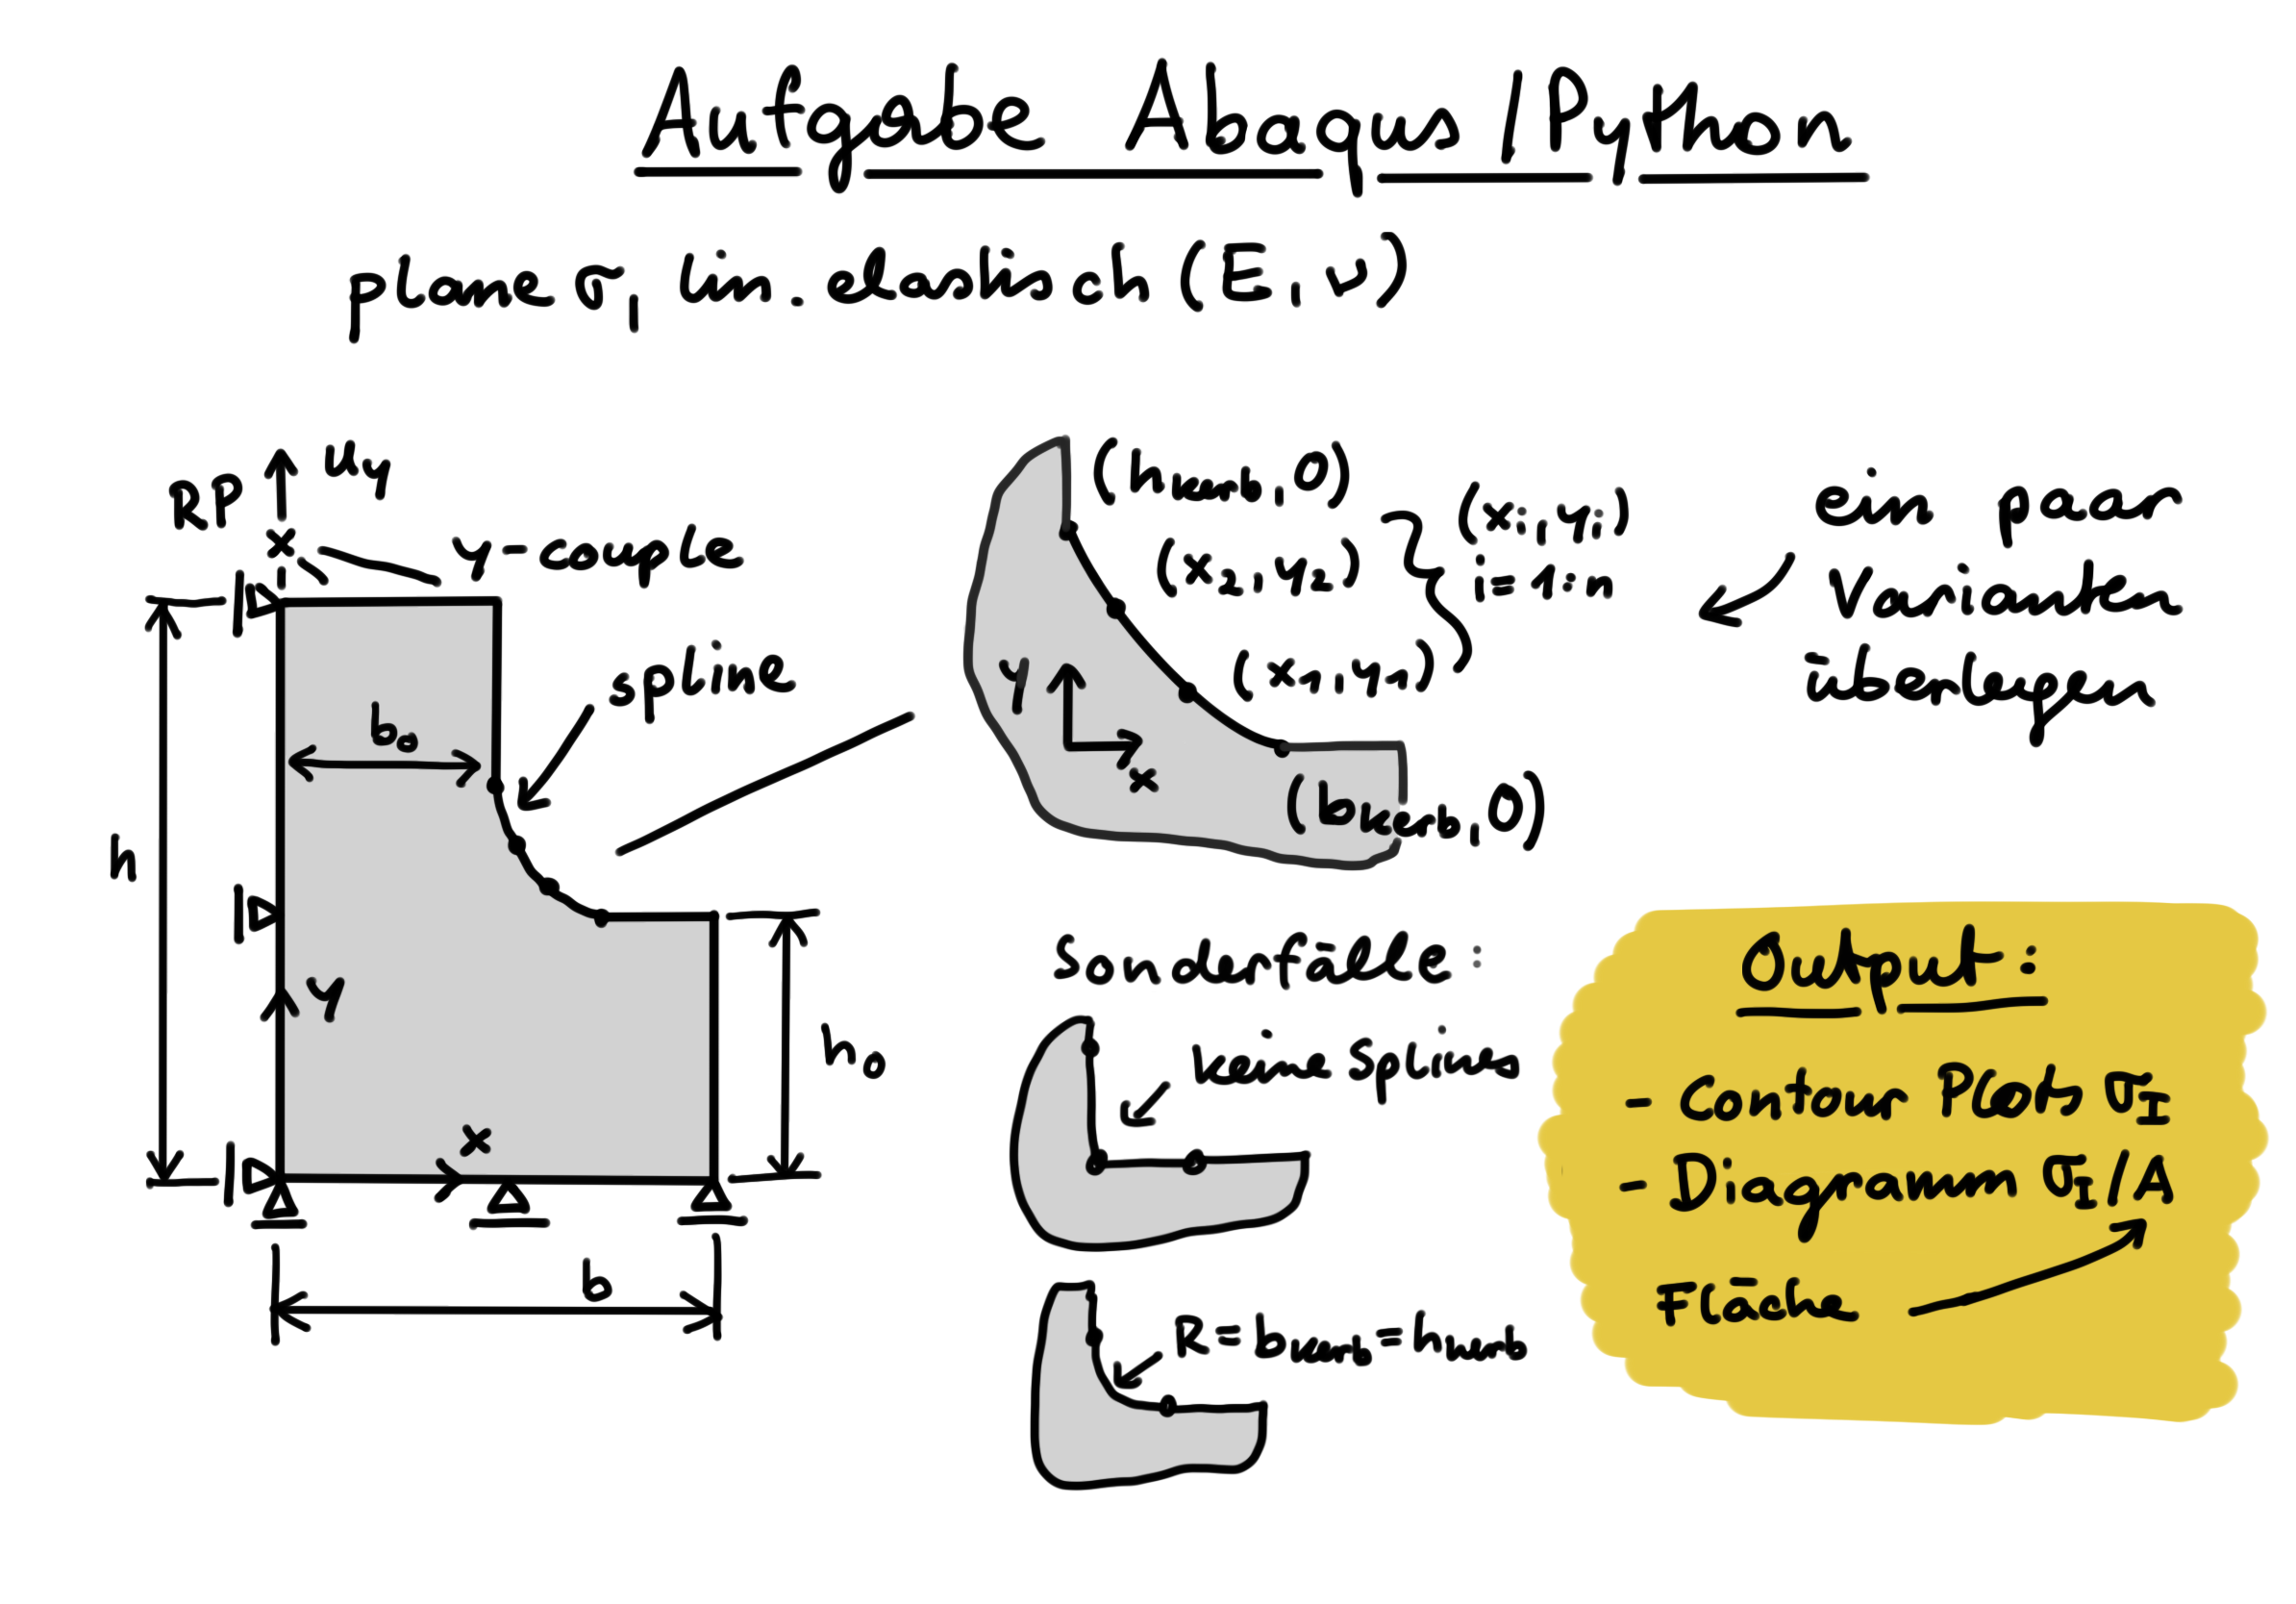 Aufgabe Abaqus/Python
plane σ, lin. elastisch (E, ν)
RP
u_y
x
y-couple
spline
b_0
h
y
x
h_0
b
(h_Kerb, 0)
(x_2, y_2)
(x_1, y_1)
(x_i, y_i)
i = 1:n
y
x
(b_Kerb, 0)
ein paar
Varianten
überlegen
Sonderfälle:
keine Splines
R = b_Kerb = h_Kerb
Output:
- Contour Plots σ_I
- Diagramm σ_I/A
Fläche